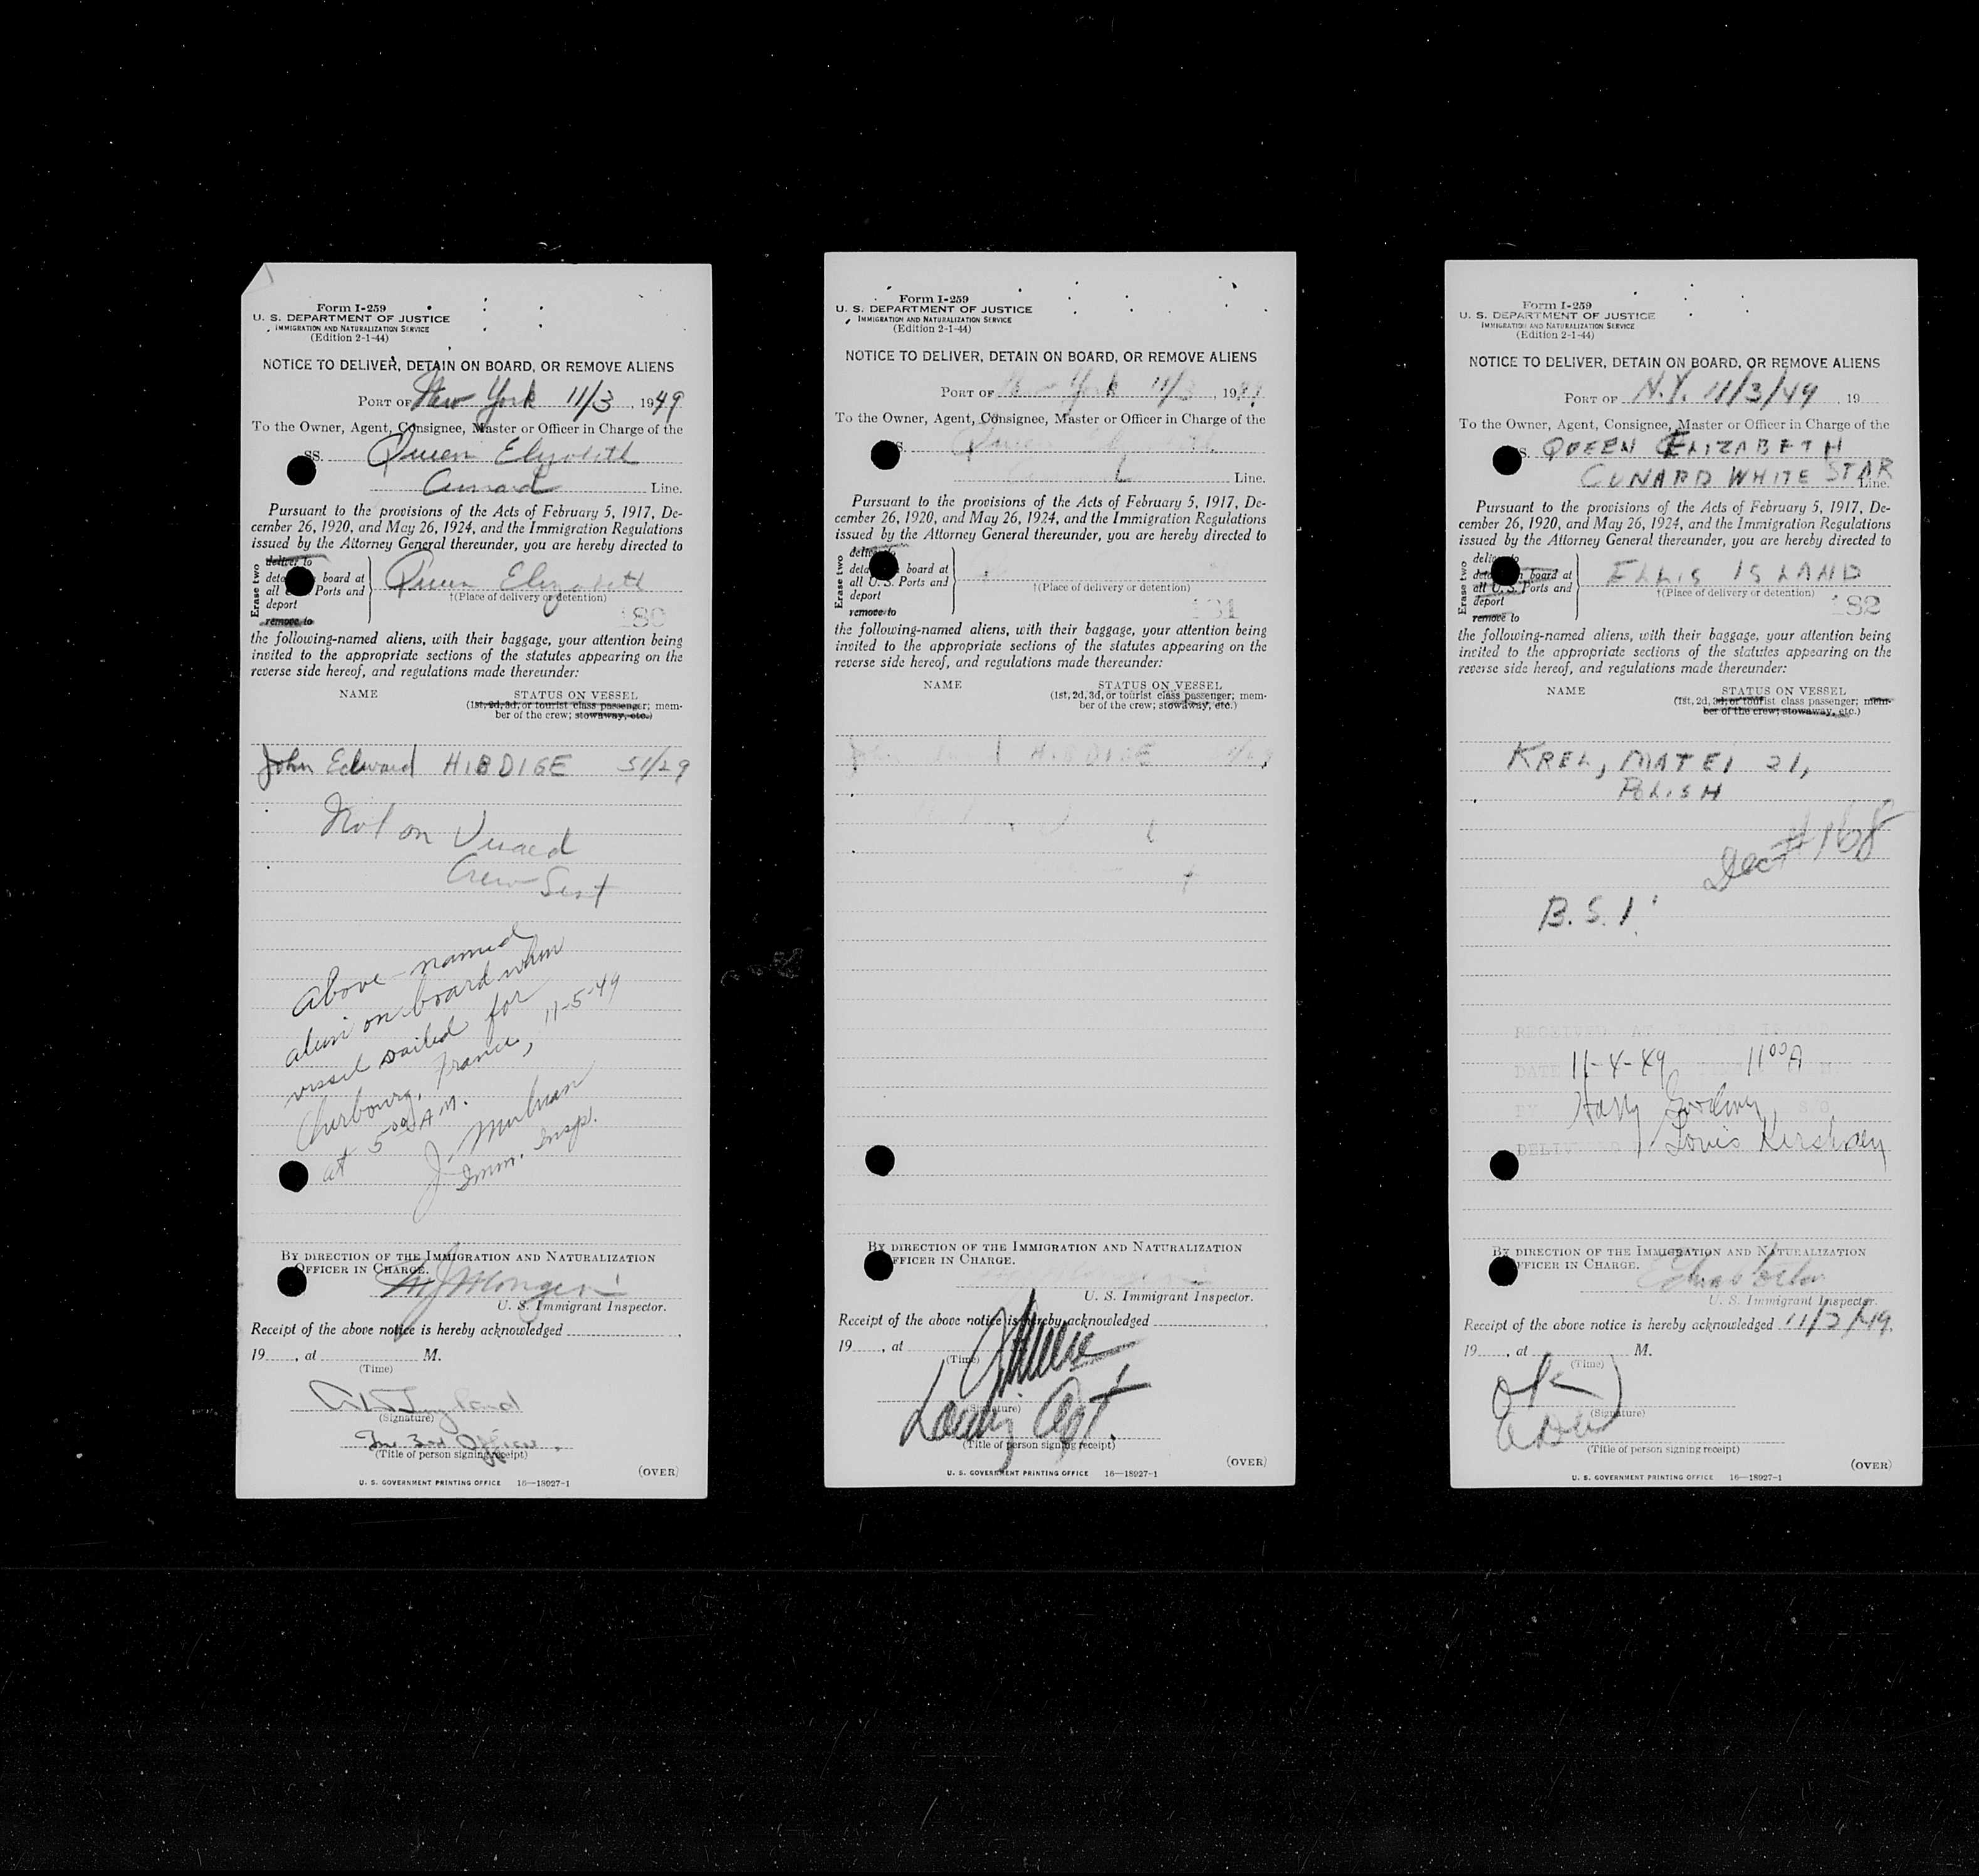 Form I-259
U. S. DEPARTMENT OF JUSTICE
IMMIGRATION AND NATURALIZATION SERVICE
(Edition 2-1-44)
NOTICE TO DELIVER, DETAIN ON BOARD, OR REMOVE ALIENS
PORT OF New York 11/3, 1949
To the Owner, Agent, Consignee, Master or Officer in Charge of the
SS. Queen Elizabeth
Cunard Line.
Pursuant to the provisions of the Acts of February 5, 1917, De-
cember 26, 1920, and May 26, 1924, and the Immigration Regulations
issued by the Attorney General thereunder, you are hereby directed to
Erase two
deliver to
board at
all Ports and
deport
remove to
Queen Elizabeth
†(Place of delivery or detention)
180
the following-named aliens, with their baggage, your attention being
invited to the appropriate sections of the statutes appearing on the
reverse side hereof, and regulations made thereunder:
NAME STATUS ON VESSEL
(1st, 2d, 3d, or tourist class passenger; mem-
ber of the crew; stowaway, etc.)
John Edward HIBDIGE 51/29
Not on Visaed
Crew List
Above-named
alien on board when
vessel sailed for
Cherbourg, France, 11-5-49
at 5:00 A.M.
Imm. Insp.
BY DIRECTION OF THE IMMIGRATION AND NATURALIZATION
OFFICER IN CHARGE.
U. S. Immigrant Inspector.
Receipt of the above notice is hereby acknowledged
19, at M.
(Time)
(Signature)
3rd Officer.
(Title of person signing receipt)
(OVER)
U. S. GOVERNMENT PRINTING OFFICE 16—18927-1
Form I-259
U. S. DEPARTMENT OF JUSTICE
IMMIGRATION AND NATURALIZATION SERVICE
(Edition 2-1-44)
NOTICE TO DELIVER, DETAIN ON BOARD, OR REMOVE ALIENS
PORT OF New York 11/3, 1949
To the Owner, Agent, Consignee, Master or Officer in Charge of the
Queen Elizabeth
Line.
Pursuant to the provisions of the Acts of February 5, 1917, De-
cember 26, 1920, and May 26, 1924, and the Immigration Regulations
issued by the Attorney General thereunder, you are hereby directed to
Erase two
board at
all U. S. Ports and
deport
remove to
†(Place of delivery or detention)
181
the following-named aliens, with their baggage, your attention being
invited to the appropriate sections of the statutes appearing on the
reverse side hereof, and regulations made thereunder:
NAME STATUS ON VESSEL
(1st, 2d, 3d, or tourist class passenger; mem-
ber of the crew; stowaway, etc.)
John HIBDIGE
BY DIRECTION OF THE IMMIGRATION AND NATURALIZATION
OFFICER IN CHARGE.
U. S. Immigrant Inspector.
Receipt of the above notice is hereby acknowledged
19, at
(Time)
(Signature)
Agt.
(Title of person signing receipt)
(OVER)
U. S. GOVERNMENT PRINTING OFFICE 16—18927-1
Form I-259
U. S. DEPARTMENT OF JUSTICE
IMMIGRATION AND NATURALIZATION SERVICE
(Edition 2-1-44)
NOTICE TO DELIVER, DETAIN ON BOARD, OR REMOVE ALIENS
PORT OF N.Y. 11/3/49, 19
To the Owner, Agent, Consignee, Master or Officer in Charge of the
QUEEN ELIZABETH
CUNARD WHITE STAR Line.
Pursuant to the provisions of the Acts of February 5, 1917, De-
cember 26, 1920, and May 26, 1924, and the Immigration Regulations
issued by the Attorney General thereunder, you are hereby directed to
Erase two
board at
all U. S. Ports and
deport
remove to
ELLIS ISLAND
†(Place of delivery or detention)
182
the following-named aliens, with their baggage, your attention being
invited to the appropriate sections of the statutes appearing on the
reverse side hereof, and regulations made thereunder:
NAME STATUS ON VESSEL
(1st, 2d, 3d, or tourist class passenger; mem-
ber of the crew; stowaway, etc.)
KREL, MATEI 21,
POLISH
#168
B.S.I.
RECEIVED AT ELLIS ISLAND
DATE 11-4-49 TIME 11:00 A
BY Harry
Louis
BY DIRECTION OF THE IMMIGRATION AND NATURALIZATION
OFFICER IN CHARGE.
U. S. Immigrant Inspector.
Receipt of the above notice is hereby acknowledged 11/3/49.
19, at M.
(Time)
(Signature)
(Title of person signing receipt)
(OVER)
U. S. GOVERNMENT PRINTING OFFICE 16—18927-1